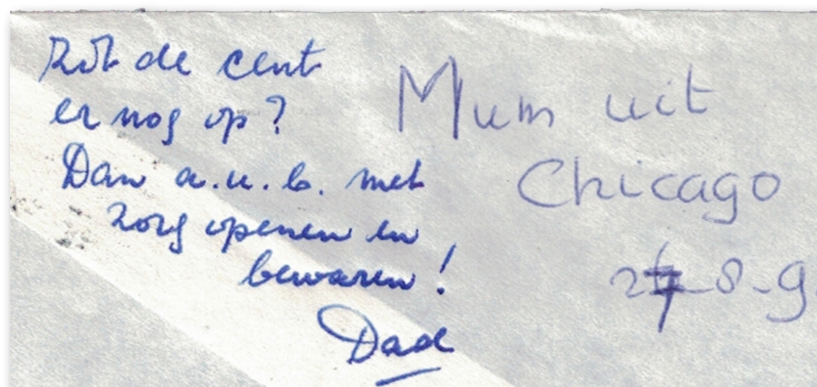 Zit de cent
er nog op?
Dan a.u.b. met
zorg openen en
bewaren!
Dad
Mum uit
Chicago
27-8-9